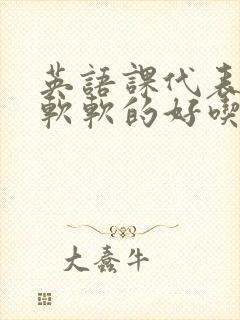 英語課代表
軟軟的好喫
大蠢牛